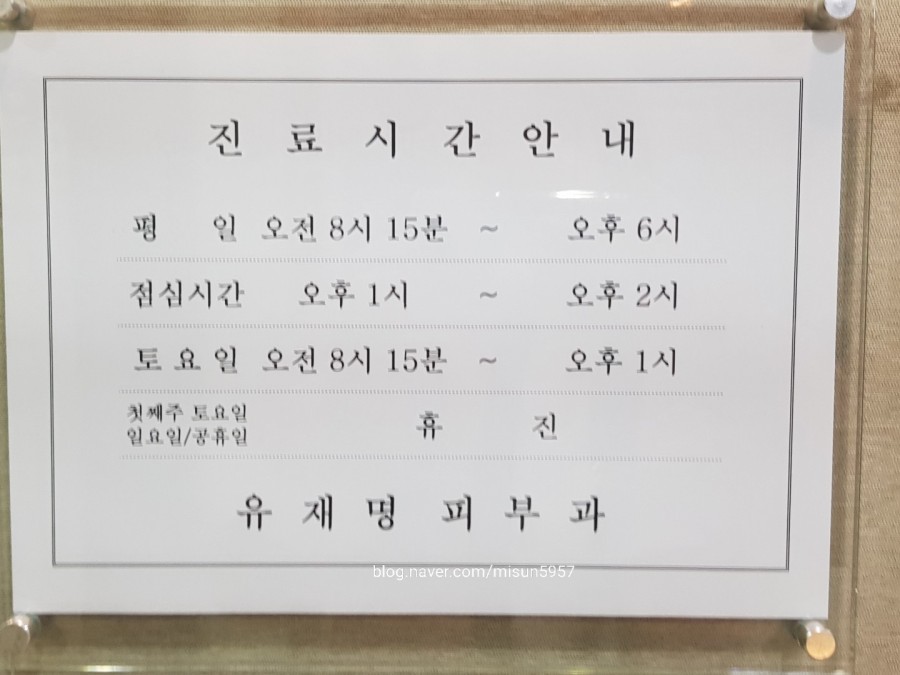 진 료 시 간 안 내
평 일 오전 8시 15분 ~ 오후 6시
점심시간 오후 1시 ~ 오후 2시
토 요 일 오전 8시 15분 ~ 오후 1시
첫째주 토요일
일요일/공휴일
휴 진
유 재 명 피 부 과
blog.naver.com/misun5957